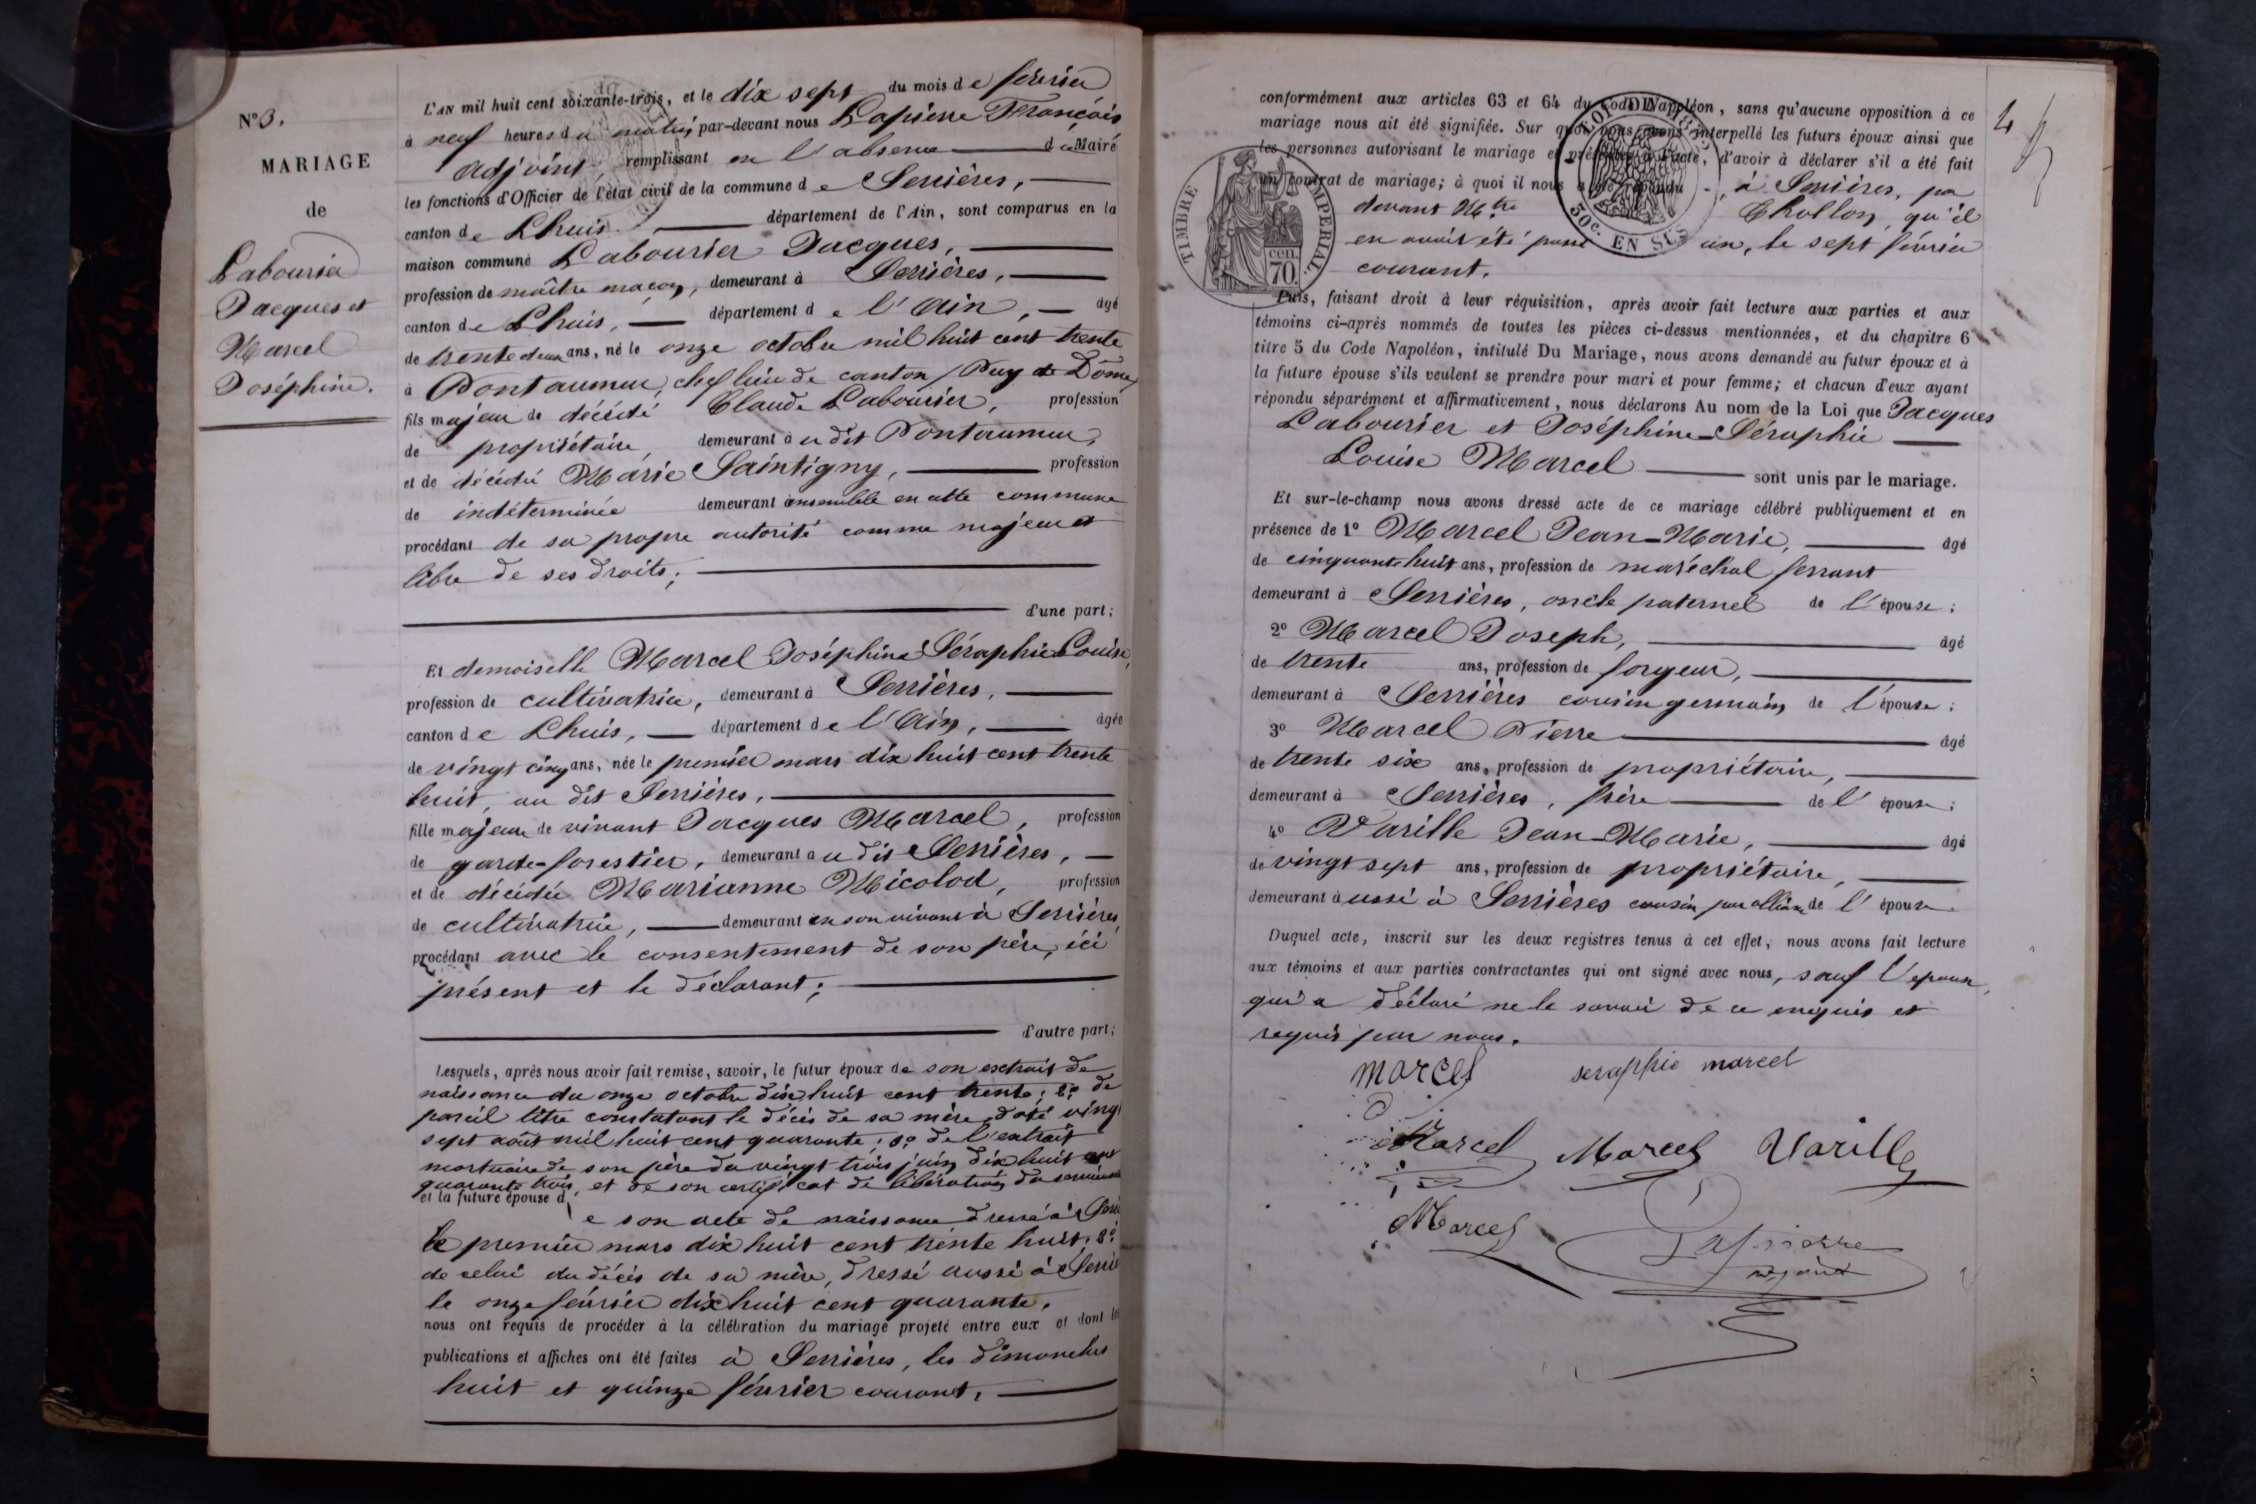 N° 3.
MARIAGE
de
Labourier
Jacques et
Marcel
Joséphine.
L'AN mil huit cent soixante-trois, et le dix sept du mois de février
à neuf heures du matin, par-devant nous Lapierre François
adjoint, remplissant en l'absence du Maire
les fonctions d'Officier de l'état civil de la commune de Serrières,
canton de Lhuis, département de l'Ain, sont comparus en la
maison commune Labourier Jacques,
profession de maître maçon, demeurant à Serrières,
canton de Lhuis, département de l'Ain, âgé
de trente deux ans, né le onze octobre mil huit cent trente
à Pontaumur, chef lieu de canton (Puy de Dôme)
fils majeur de décédé Claude Labourier, profession
de propriétaire demeurant au dit Pontaumur,
et de décédée Marie Saintigny, profession
de indéterminée demeurant ensemble en cette commune
procédant de sa propre autorité comme majeur et
libre de ses droits;
d'une part;
Et demoiselle Marcel Joséphine Séraphie Louise,
profession de cultivatrice, demeurant à Serrières,
canton de Lhuis, département de l'Ain, âgée
de vingt cinq ans, née le premier mars dix huit cent trente
huit, au dit Serrières,
fille majeure de vivant Jacques Marcel, profession
de garde-forestier, demeurant au dit Serrières,
et de décédée Marianne Micolod, profession
de cultivatrice, demeurant en son vivant à Serrières,
procédant avec le consentement de son père, ici
présent et le déclarant;
d'autre part;
Lesquels, après nous avoir fait remise, savoir, le futur époux de son extrait de
naissance du onze octobre dix huit cent trente; 2° de
pareil titre constatant le décès de sa mère, daté vingt
sept août mil huit cent quarante; 3° de l'extrait
mortuaire de son père du vingt trois juin dix huit cent
quarante trois, et de son certificat de libération du service
et la future épouse d
e son acte de naissance dressé à Serri
le premier mars dix huit cent trente huit, 2°
de celui du décès de sa mère, dressé aussi à Serri
le onze février dix huit cent quarante.
nous ont requis de procéder à la célébration du mariage projeté entre eux et dont les
publications et affiches ont été faites à Serrières, les dimanches
huit et quinze février courant,
conformément aux articles 63 et 64 du Code Napoléon, sans qu'aucune opposition à ce
mariage nous ait été signifiée. Sur quoi nous avons interpellé les futurs époux ainsi que
les personnes autorisant le mariage et présentes à l'acte, d'avoir à déclarer s'il a été fait
un contrat de mariage; à quoi il nous a été répondu à Serrières, par
devant Mtre Chollon, qu'il
en avait été passé un, le sept février
courant.
TIMBRE IMPERIAL.
cen. 70.
50c. EN SUS
Puis, faisant droit à leur réquisition, après avoir fait lecture aux parties et aux
témoins ci-après nommés de toutes les pièces ci-dessus mentionnées, et du chapitre 6
titre 5 du Code Napoléon, intitulé Du Mariage, nous avons demandé au futur époux et à
la future épouse s'ils veulent se prendre pour mari et pour femme; et chacun d'eux ayant
répondu séparément et affirmativement, nous déclarons Au nom de la Loi que Jacques
Labourier et Joséphine-Séraphie
Louise Marcel sont unis par le mariage.
Et sur-le-champ nous avons dressé acte de ce mariage célébré publiquement et en
présence de 1° Marcel Jean-Marie, âgé
de cinquante huit ans, profession de maréchal ferrant
demeurant à Serrières, oncle paternel de l'épouse;
2° Marcel Joseph, âgé
de trente ans, profession de forgeur,
demeurant à Serrières cousin germain de l'épouse;
3° Marcel Pierre âgé
de trente six ans, profession de propriétaire,
demeurant à Serrières, frère de l'épouse;
4° Varille Jean-Marie, âgé
de vingt sept ans, profession de propriétaire,
demeurant aussi à Serrières cousin par alliance de l'épouse.
Duquel acte, inscrit sur les deux registres tenus à cet effet, nous avons fait lecture
aux témoins et aux parties contractantes qui ont signé avec nous, sauf l'époux,
qui a déclaré ne le savoir de ce enquis et
requis par nous.
marcel seraphie marcel
Marcel Marcel Varille
Marcel Lapierre
adjoint